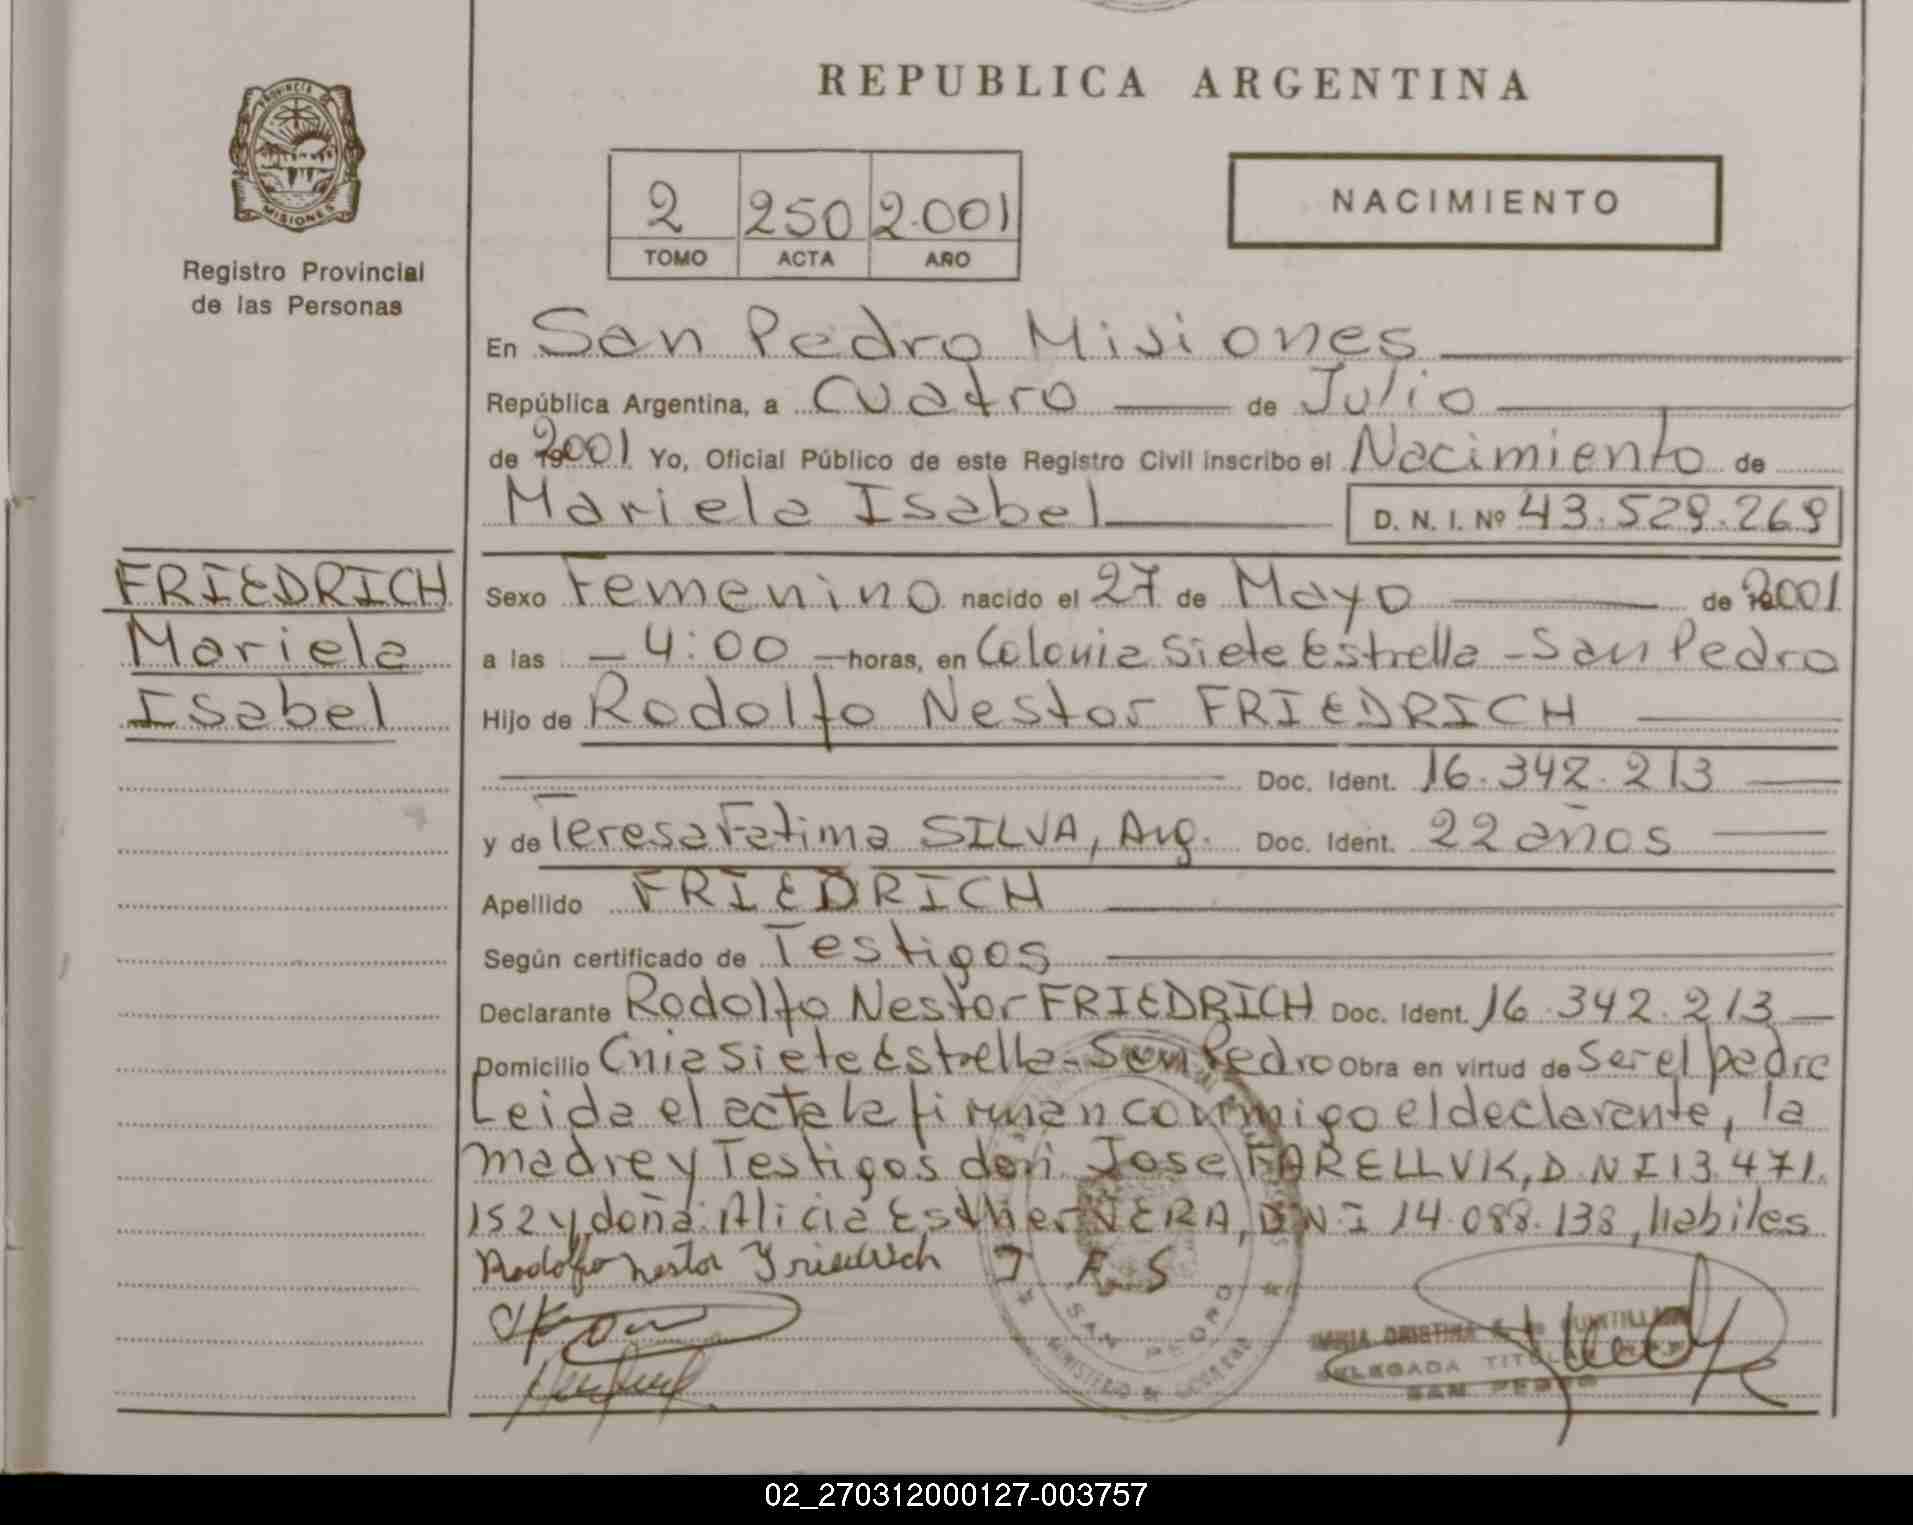 REPUBLICA ARGENTINA
PROVINCIA DE
MISIONES
Registro Provincial
de las Personas
2 250 2.001
TOMO ACTA AÑO
NACIMIENTO
En San Pedro Misiones
República Argentina, a Cuatro de Julio
de 2001 Yo, Oficial Público de este Registro Civil inscribo el Nacimiento de
Mariela Isabel D. N. I. Nº 43.529.269
FRIEDRICH
Mariela
Isabel
Sexo Femenino nacido el 27 de Mayo de 2001
a las 4:00 horas, en Colonia Siete Estrella - San Pedro
Hijo de Rodolfo Nestor FRIEDRICH
Doc. Ident. 16.342.213
y de Teresa Fatima SILVA, Arg. Doc. Ident. 22 años
Apellido FRIEDRICH
Según certificado de Testigos
Declarante Rodolfo Nestor FRIEDRICH Doc. Ident. 16.342.213
Domicilio Cnia Siete Estrella - San Pedro Obra en virtud de Ser el padre
Leida el acta la firman conmigo el declarante, la
madre y Testigos don: Jose FARELLVK, D.N I 13.471.
152 y doña: Alicia Esther VERA, D.N.I 14.088.138, habiles
Rodolfo Nestor Friedrich T F S
SAN PEDRO
MINISTERIO DE GOBIERNO
DELEGADA TITULAR
SAN PEDRO
02_270312000127-003757